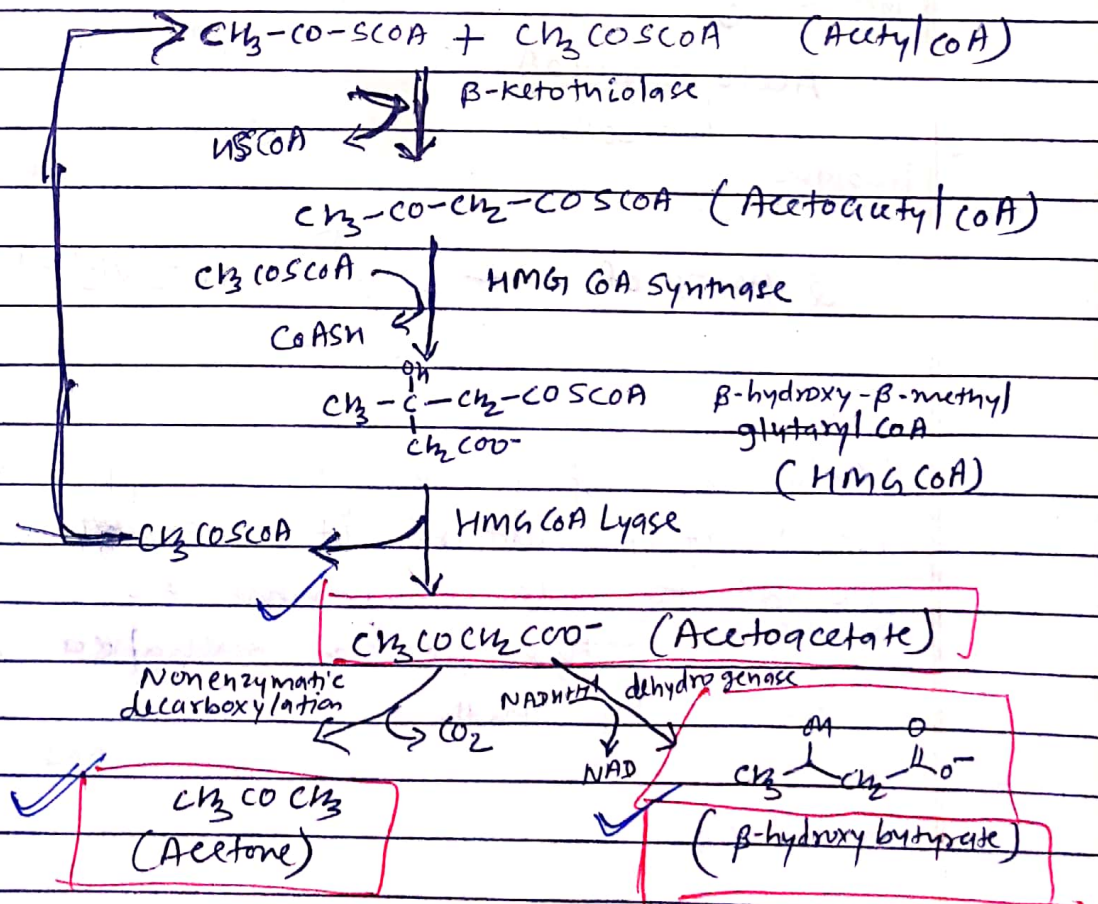 CH₃-CO-SCOA + CH₃COSCOA (Acetyl CoA)
β-ketothiolase
HSCOA
CH₃-CO-CH₂-COSCOA (Acetoacetyl CoA)
CH₃COSCOA
HMG CoA Synthase
CoASH
OH
CH₃-C-CH₂-COSCOA β-hydroxy-β-methyl
glutaryl CoA
CH₂COO⁻
(HMG CoA)
HMG CoA Lyase
CH₃COSCOA
CH₃COCH₂COO⁻ (Acetoacetate)
Nonenzymatic
decarboxylation
NADH+H⁺ dehydrogenase
CO₂
NAD
OH O
CH₃ CH₂ O⁻
CH₃COCH₃
(Acetone)
(β-hydroxy butyrate)